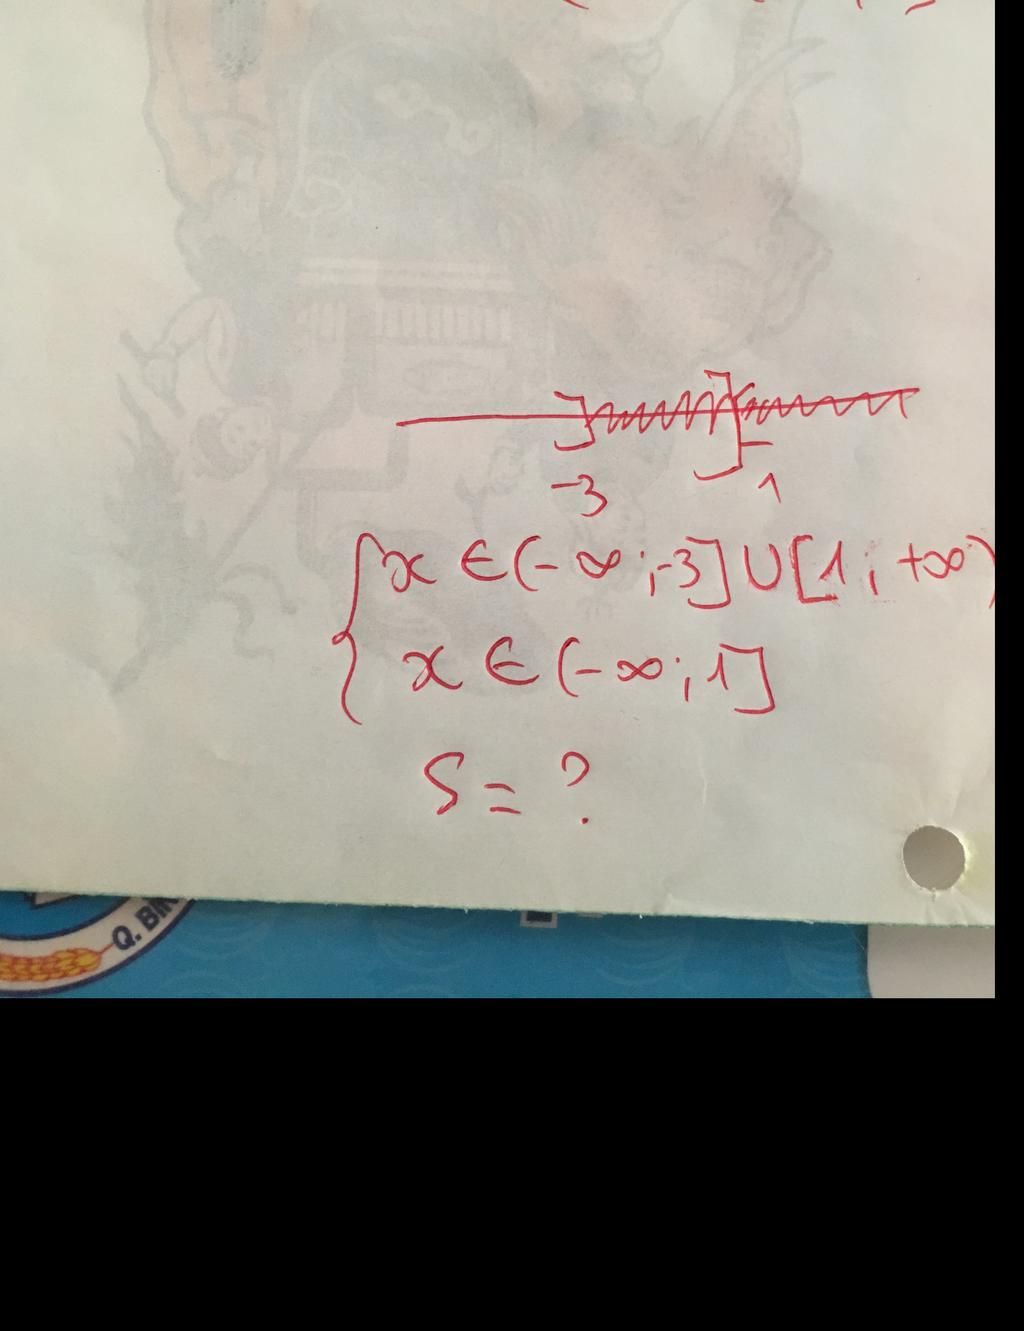 -3 1
x ∈ (-∞ ; -3] ∪ [1 ; +∞)
x ∈ (-∞ ; 1]
S = ?
Q. BÌN